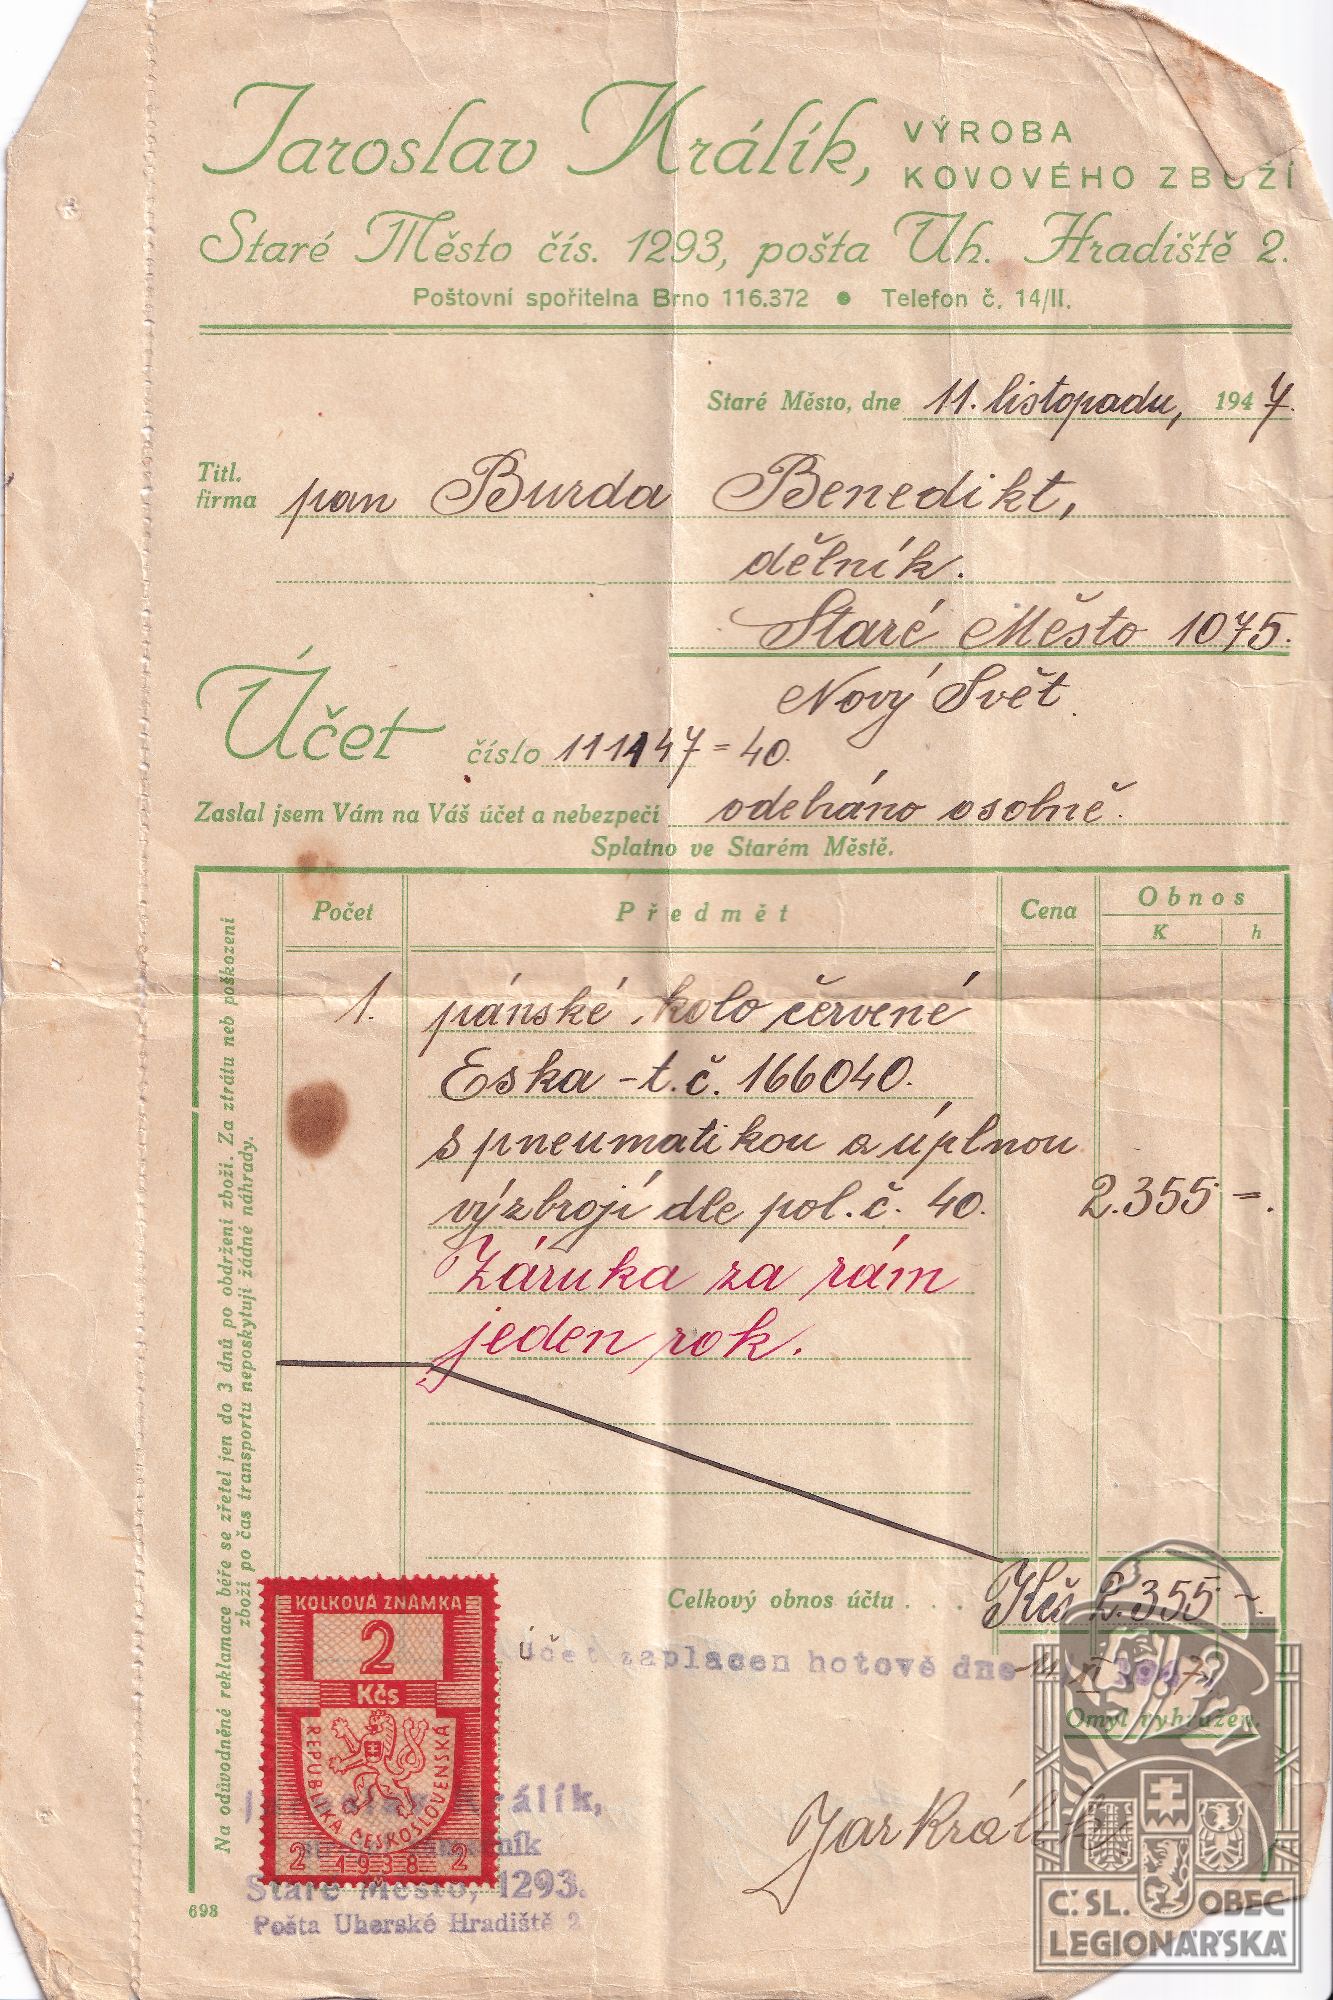 Jaroslav Králík, VÝROBA
KOVOVÉHO ZBOŽÍ
Staré Město čís. 1293, pošta Uh. Hradiště 2.
Poštovní spořitelna Brno 116.372 • Telefon č. 14/II.
Staré Město, dne 11. listopadu, 1947.
Titl.
firma pan Burda Benedikt,
dělník.
Staré Město 1075.
Nový Svět.
Účet číslo 111147=40.
Zaslal jsem Vám na Váš účet a nebezpečí odebráno osobně.
Splatno ve Starém Městě.
Počet Předmět Cena Obnos
K h
1. pánské kolo červené
Eska - t.č. 166040.
s pneumatikou a úplnou
výzbrojí dle pol. č. 40. 2.355 -.
Záruka za rám
jeden rok.
Na odůvodněné reklamace béře se zřetel jen do 3 dnů po obdržení zboží. Za ztrátu neb poškození
zboží po čas transportu neposkytuji žádné náhrady.
Celkový obnos účtu . . . Kčs 2.355 -.
Účet zaplacen hotově dne 11. XI. 1947
Omyl vyhražen.
KOLKOVÁ ZNÁMKA
2
Kčs
REPUBLIKA ČESKOSLOVENSKÁ
2 1938 2
Jaroslav Králík,
Staré Město, 1293.
Pošta Uherské Hradiště 2
Jar Králík
698
Č.SL. OBEC
LEGIONÁŘSKÁ